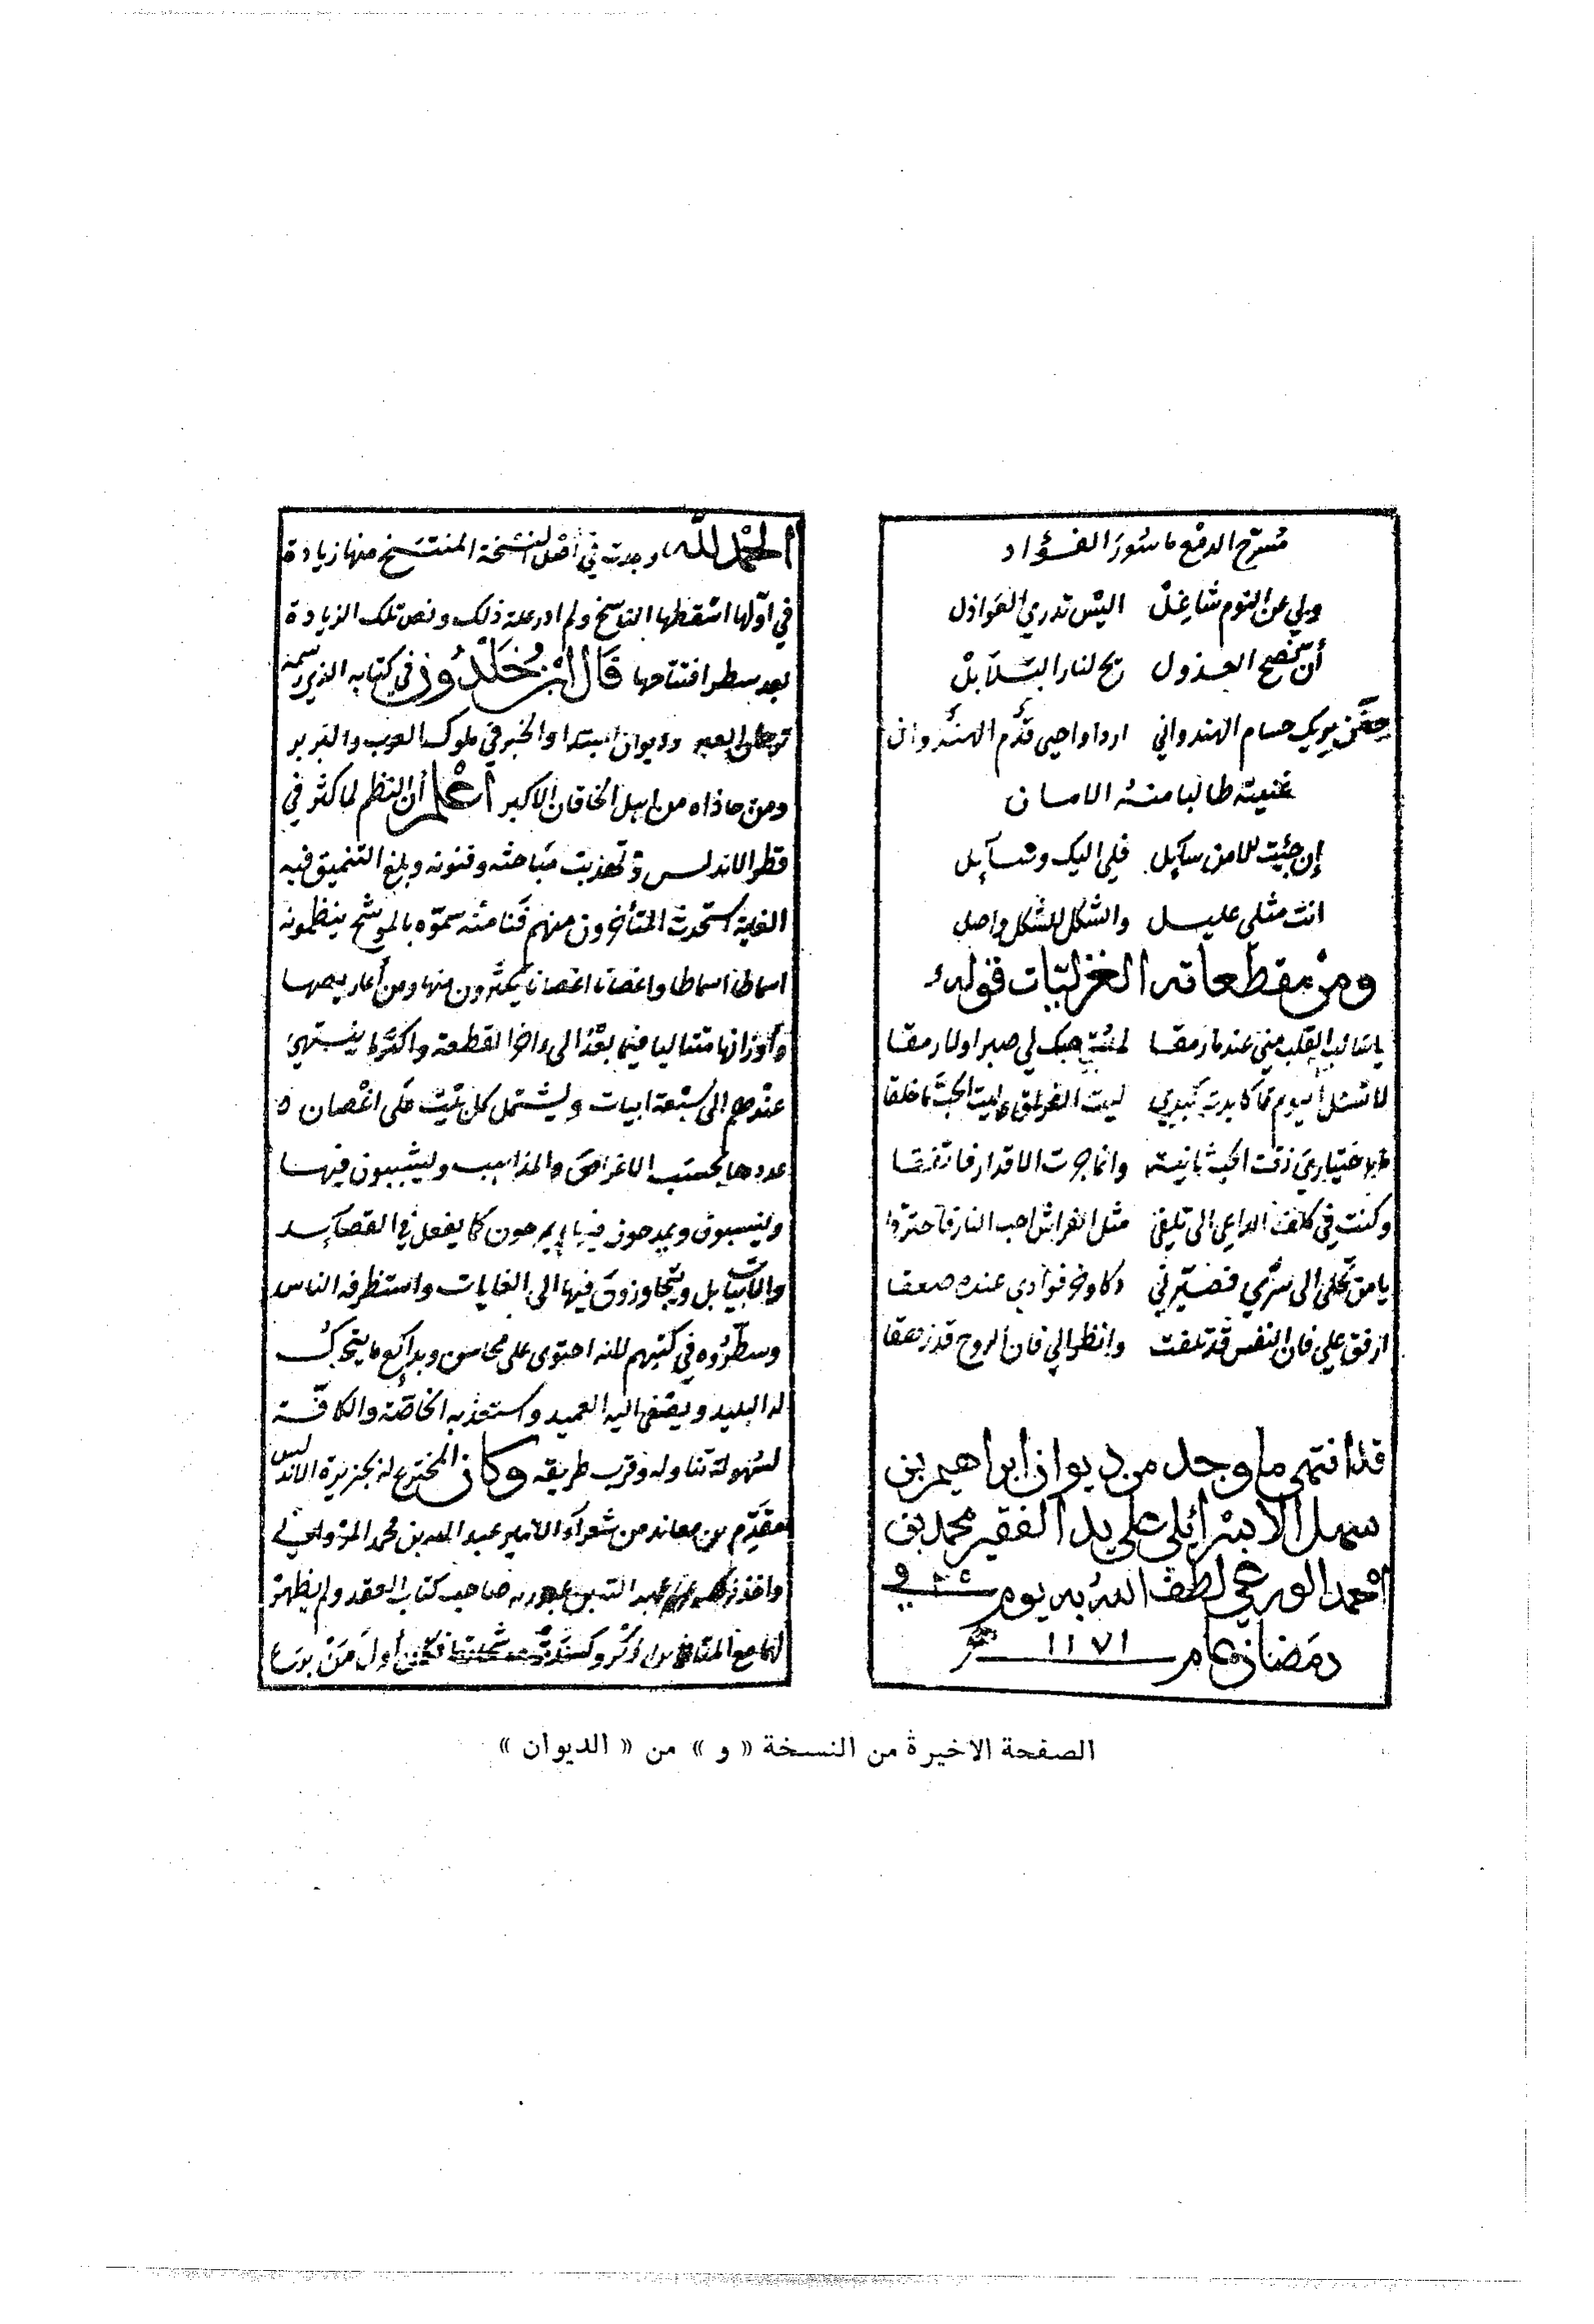 مُسَرّح الدمع ماسُورَ الفؤاد
ولي عن النوم شاغل اليْس تدري العواذل
أن ينصح العذول ريح لنار البلابل
جفن يريك حسام الهندواني
غنيته طالبا منه الامان
إن جئيت للامن سآيل فلي اليك وسآيل
انت مثلي عليل والشكل للشكل واصل
ومن مقطعاته الغزليّات قوله
يا سالب القلب مني عندما رمقا لم يبق حبك لي صبرا ولا رمقا
لا تسئل اليوم عما كابدت كبدي ليت الفراق وليت الحبّ ما خلقا
ما باختياري ذقت الحبّ ثانية وانما جرت الاقدار فاتفقا
وكنت في كلفي الداعي الى تلفي مثل الفراش احب النار فاحترقا
يا من تجلى الى سرّي فصيّرني دكا وخر فوادي عنده صعقا
ارفق علي فان النفس قد تلفت وانظر الي فان الروح قد زهقا
قد انتهى ما وجد من ديوان ابراهيم بن
سهل الاسرائلي على يد الفقير محمد بن
احمد الورغي لطف الله به يوم ٢٥ في
رمضان عام ١١٧١
الحمد لله وجدت في اصل النسخة المنتسخ منها زيادة
في اولها اسقطها الناسخ ولم ادر علة ذلك ونص تلك الزيادة
بعد سطر افتتاحها قال ابن خلدون في كتابه الذي سمه
العبر وديوان المبتدا والخبر في ملوك العرب والبربر
ومن حاذاه من اهل الخاقان الاكبر اعلم أن النظم لما كثر في
قطر الاندلس وتهذبت مباحثه وفنونه وبلغ التنميق فيه
الغاية استحدث المتأخرون منهم فنا منه سموّه بالموشح ينظمونه
اسماطا اسماطا واغصانا اغصانا يكثرون منها ومن أعاريضها
وأوزانها متتاليا فيما بعدُ الى ءاخر القطعة واكثر ما ينتهي
عندهم الى سبعة ابيات ويشتمل كل بيت على اغصان
عددها بحسب الاغراض والمذاهب ويشببون فيها
وينسبون ويمدحون كما يفعل في القصآيد
والابيات بل ويتجاوزون فيها الى الغايات واستظرفه الناس
وسطّروه في كتبهم لانه احتوى على محاسن وبدايع ما يتحرك
له البليد ويصغى اليه العميد واستعذبه الخاصّة والكافّة
لسهولة تناوله وقرب طريقه وكان المخترع له بجزيرة الاندلس
مقدّم بن معاند من شعراء الامير عبد الله بن محمد المرواني
واخذ صاحب كتاب العقد ولم يظهر
لهما مع المتاخرين ذكر وكسدت فكان أول من برع
الصفحة الاخيرة من النسخة « و » من « الديوان »